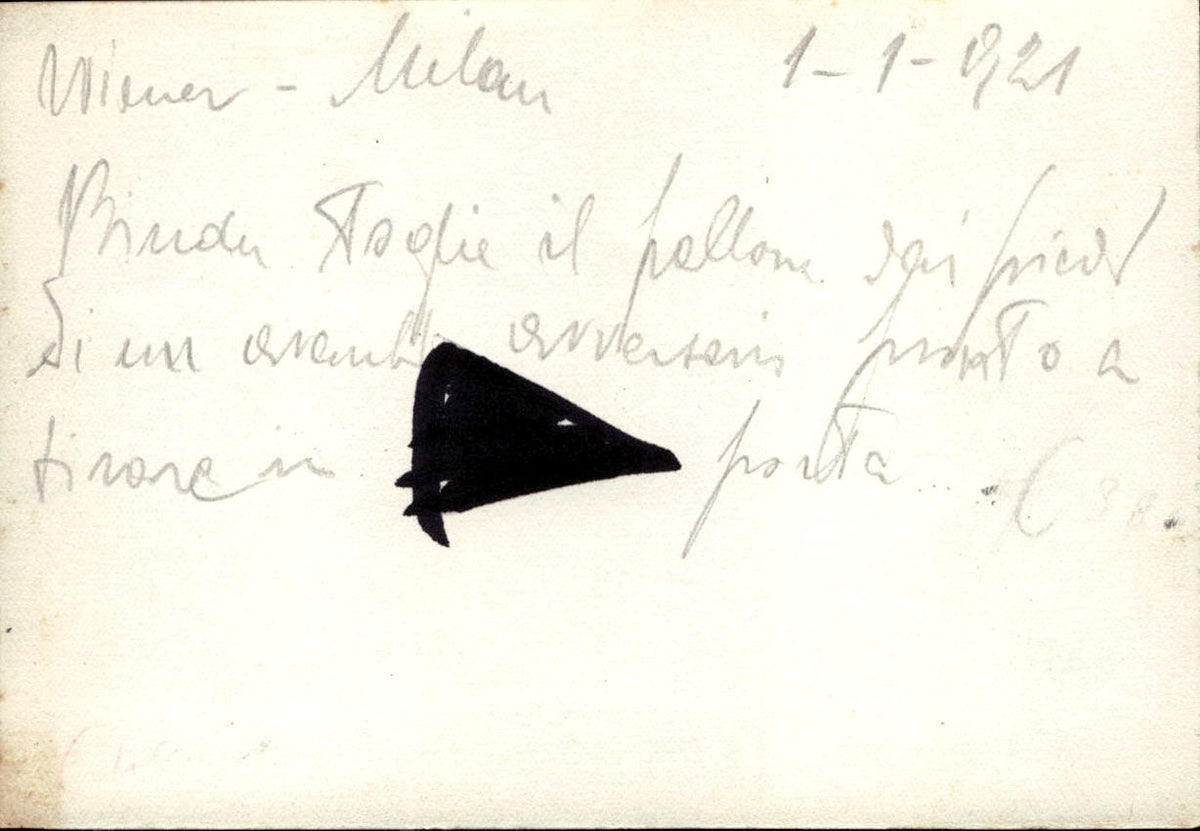 Wiener - Milan 1-1-921
Binda toglie il pallone dai piedi
di un avanti avversario pronto a
tirare in porta...